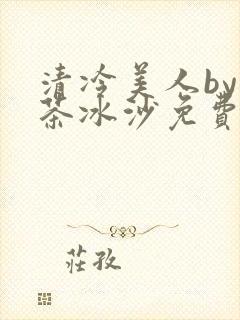 清冷美人by
茶冰沙免費
莊孜